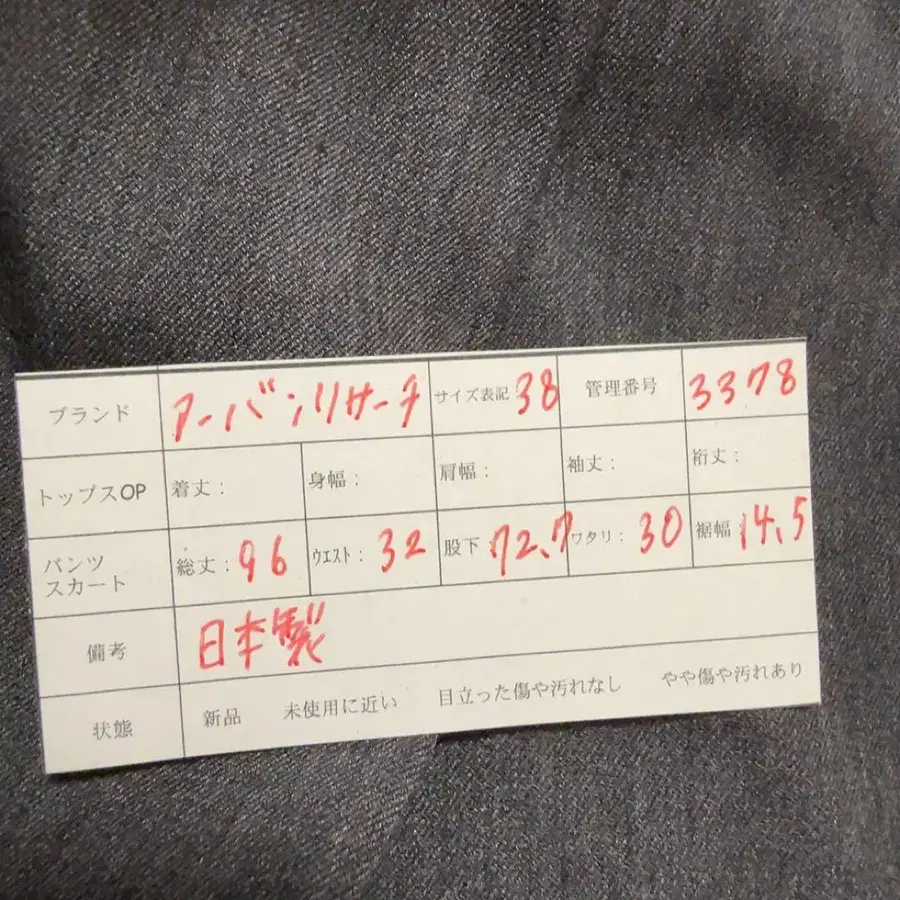 ブランド アーバンリサーチ サイズ表記 38 管理番号 3378
トップスOP 着丈： 身幅： 肩幅： 袖丈： 裄丈：
パンツ スカート 総丈：96 ウエスト：32 股下 72.7 ワタリ：30 裾幅 14.5
備考 日本製
状態 新品 未使用に近い 目立った傷や汚れなし やや傷や汚れあり